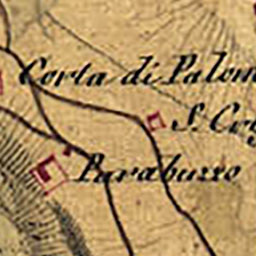 Corta di Palom
S. Cr
Parabuzzo